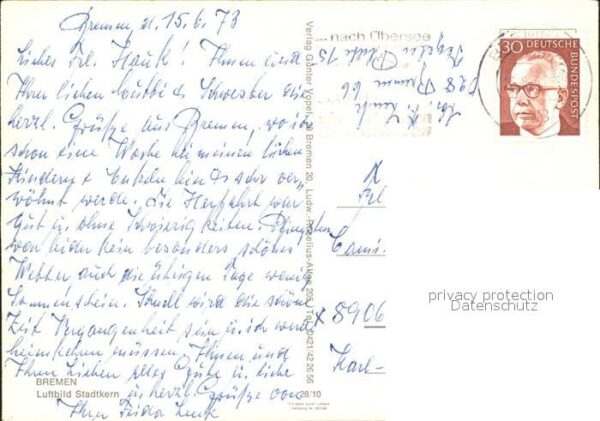 Bremen, d. 15.6.73
Liebes Frl. Hauk! Ihnen und
Ihrer lieben Mutti & Schwester die
herzl. Grüße aus Bremen, wo ich
schon eine Woche bei meinen lieben
Kindern & Enkeln bin & sehr ver-
wöhnt werde. Die Herfahrt war
gut u. ohne Schwierigkeiten. Pfingsten
war leider kein besonders schönes
Wetter auch die übrigen Tage wenig
Sonnenschein. Schnell wird die schöne
Zeit Vergangenheit sein u. ich werde
heimkehren müssen. Ihnen und
Ihren Lieben alles Gute u. liebe
u. herzl. Grüße von
Ihrer Frieda
BREMEN
Luftbild Stadtkern
28/10
Verlag Günter Vogel, 28 Bremen 20, Ludw.-Roselius-Allee 205, Tel. 0421/42 26 56
... nach Übersee
28 Bremen 66
30 DEUTSCHE
BUNDESPOST
8906
privacy protection
Datenschutz